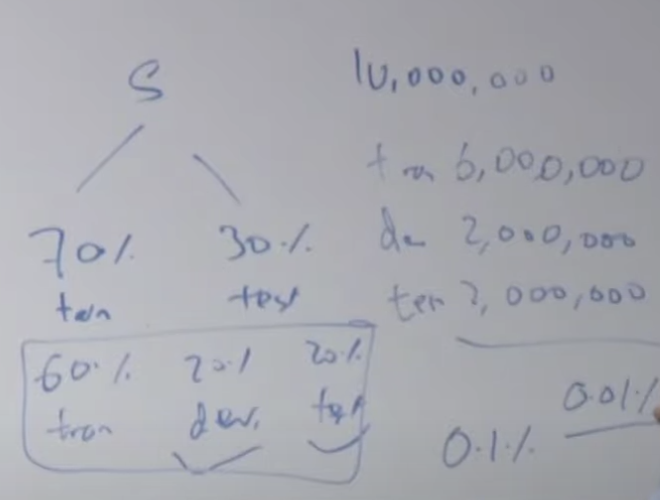 S
70% 30%
train test
60% 20% 20%
train dev. test
10,000,000
train 6,000,000
dev 2,000,000
test 2,000,000
0.1% 0.01%